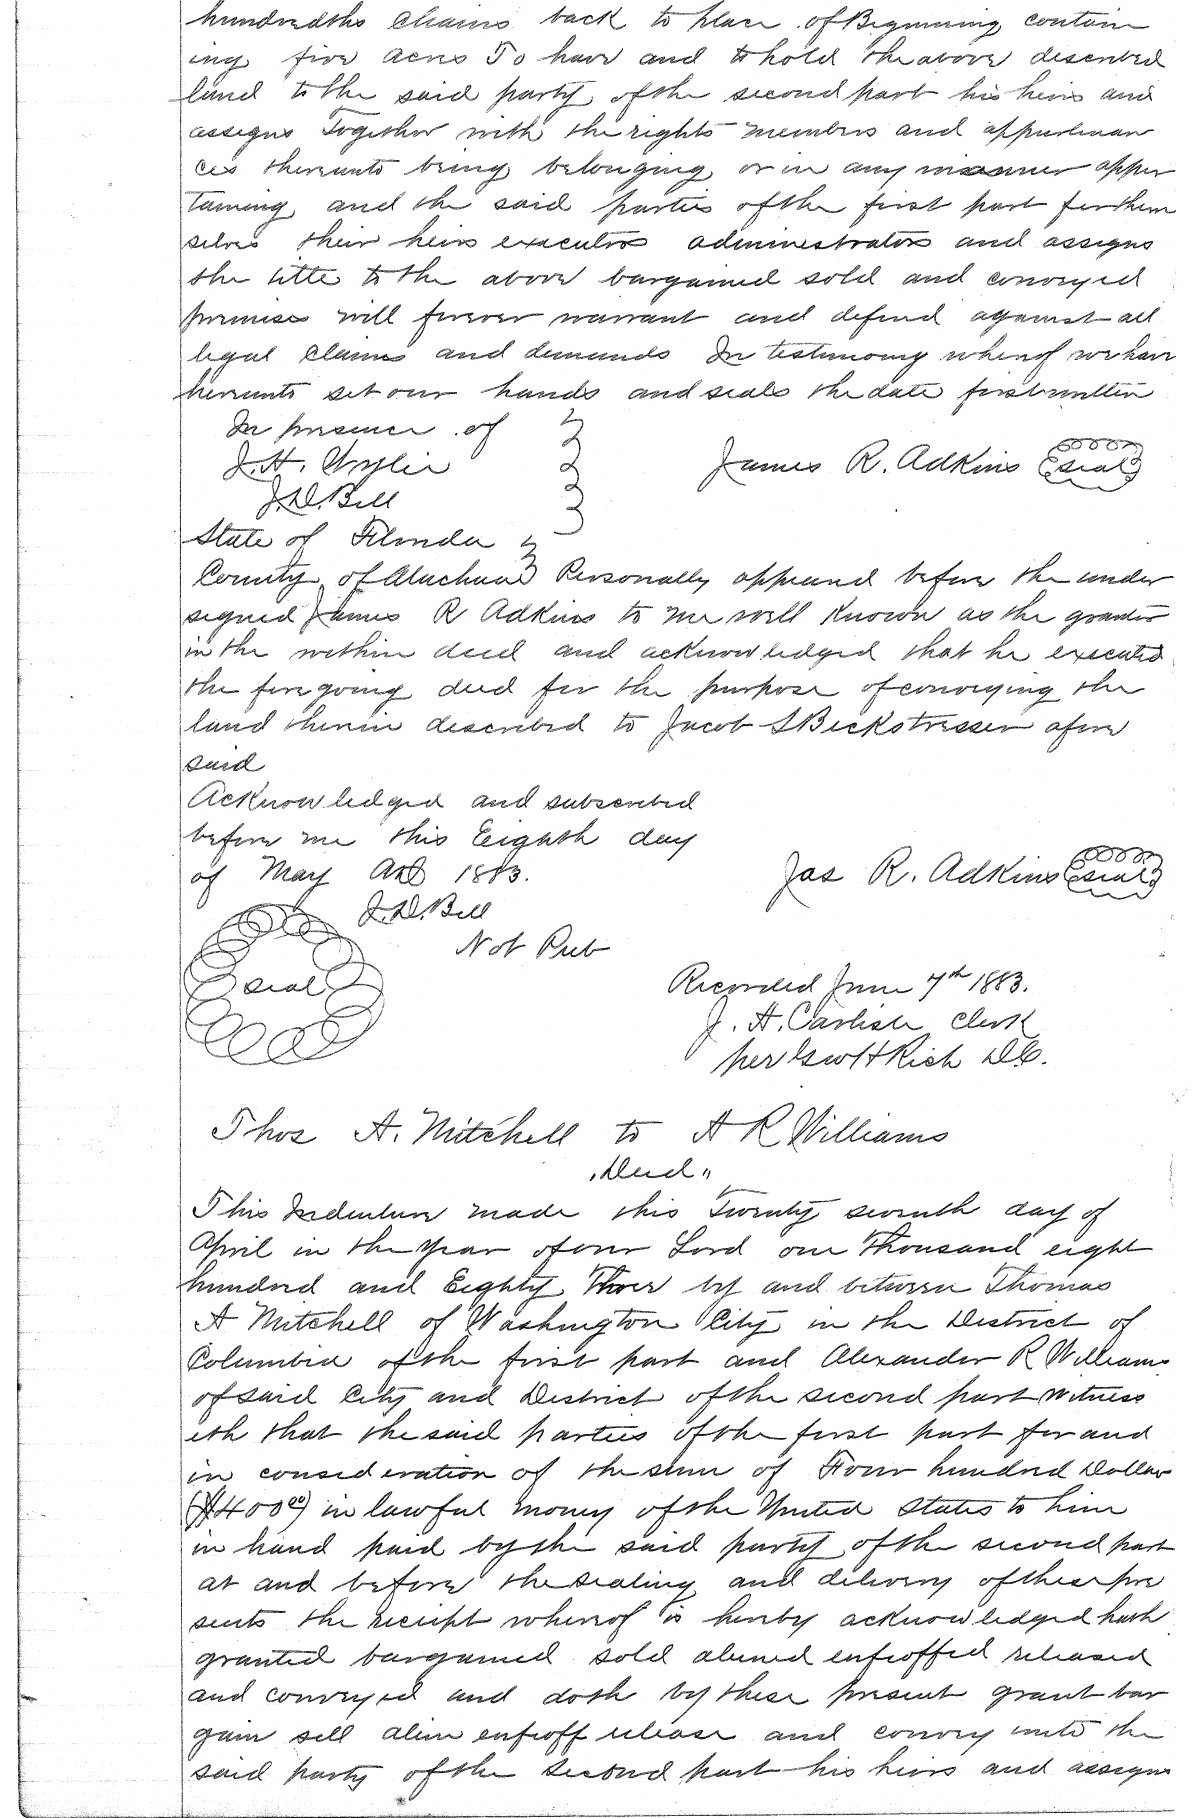 hundredths chains back to place of Beginning contain
ing five acres To have and to hold the above described
land to the said party of the second part his heirs and
assigns Together with the rights members and appurtenan
ces thereunto being belonging or in any manner apper
taining and the said parties of the first part for them
selves their heirs executors administrators and assigns
the title to the above bargained sold and conveyed
premises will forever warrant and defend against all
legal claims and demands In testimony whereof we have
hereunto set our hands and seals the date first written
In presence of
J. H. Wylie
James R. Adkins seal
J. D. Bell
State of Florida
County of Alachua Personally appeared before the under
signed James R Adkins to me well known as the grantor
in the within deed and acknowledged that he executed
the foregoing deed for the purpose of conveying the
land therein described to Jacob S Beckstresser afore
said
Acknowledged and subscribed
before me this Eighth day
of May AD 1883.
Jas R. Adkins seal
J. D. Bell
Not Pub
seal
Recorded June 7th 1883.
J. A. Carlisle Clerk
per H Rich D.C.
Thos A. Mitchell to A R Williams
"Deed"
This Indenture made this Twenty seventh day of
April in the year of our Lord one Thousand eight
hundred and Eighty Three by and between Thomas
A Mitchell of Washington City in the District of
Columbia of the first part and Alexander R Williams
of said City and District of the second part Witness
eth that the said parties of the first part for and
in consideration of the sum of Four hundred Dollars
($400 00) in lawful money of the United States to him
in hand paid by the said party of the second part
at and before the sealing and delivery of these pre
sents the receipt whereof is hereby acknowledged hath
granted bargained sold aliened enfeoffed released
and conveyed and doth by these present grant bar
gain sell alien enfeoff release and convey unto the
said party of the second part his heirs and assigns